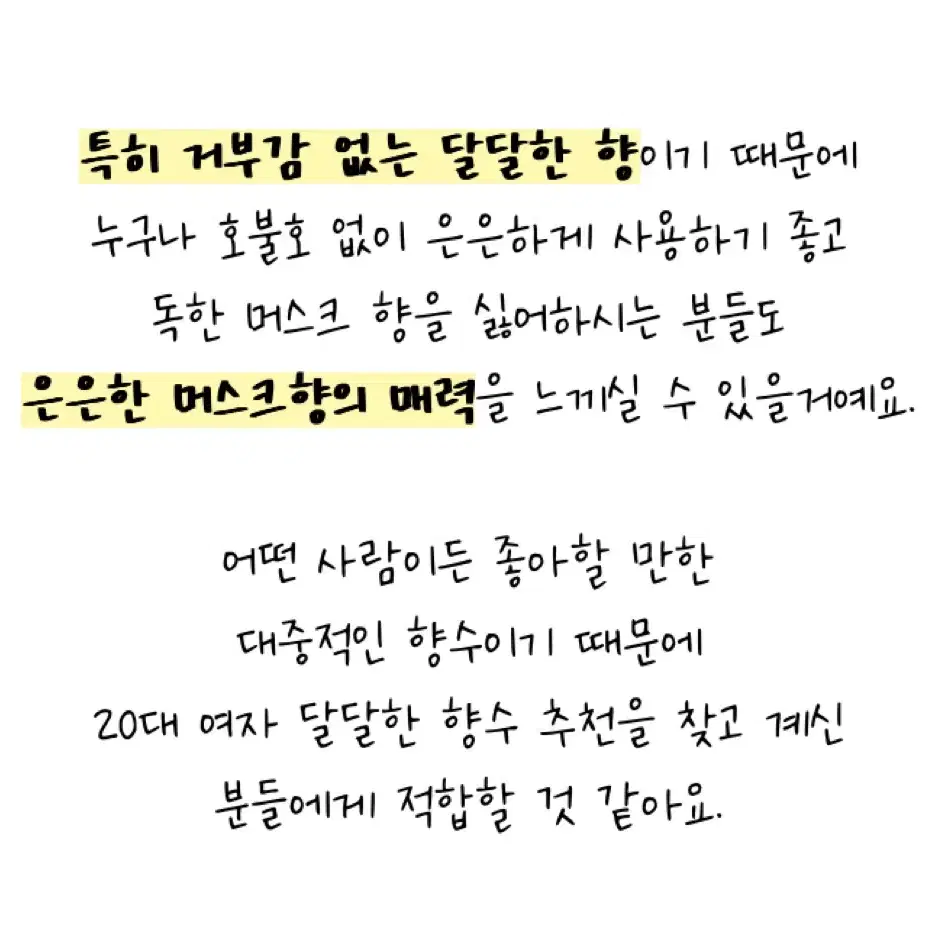 특히 거부감 없는 달달한 향이기 때문에
누구나 호불호 없이 은은하게 사용하기 좋고
독한 머스크 향을 싫어하시는 분들도
은은한 머스크향의 매력을 느끼실 수 있을거예요.
어떤 사람이든 좋아할 만한
대중적인 향수이기 때문에
20대 여자 달달한 향수 추천을 찾고 계신
분들에게 적합할 것 같아요.